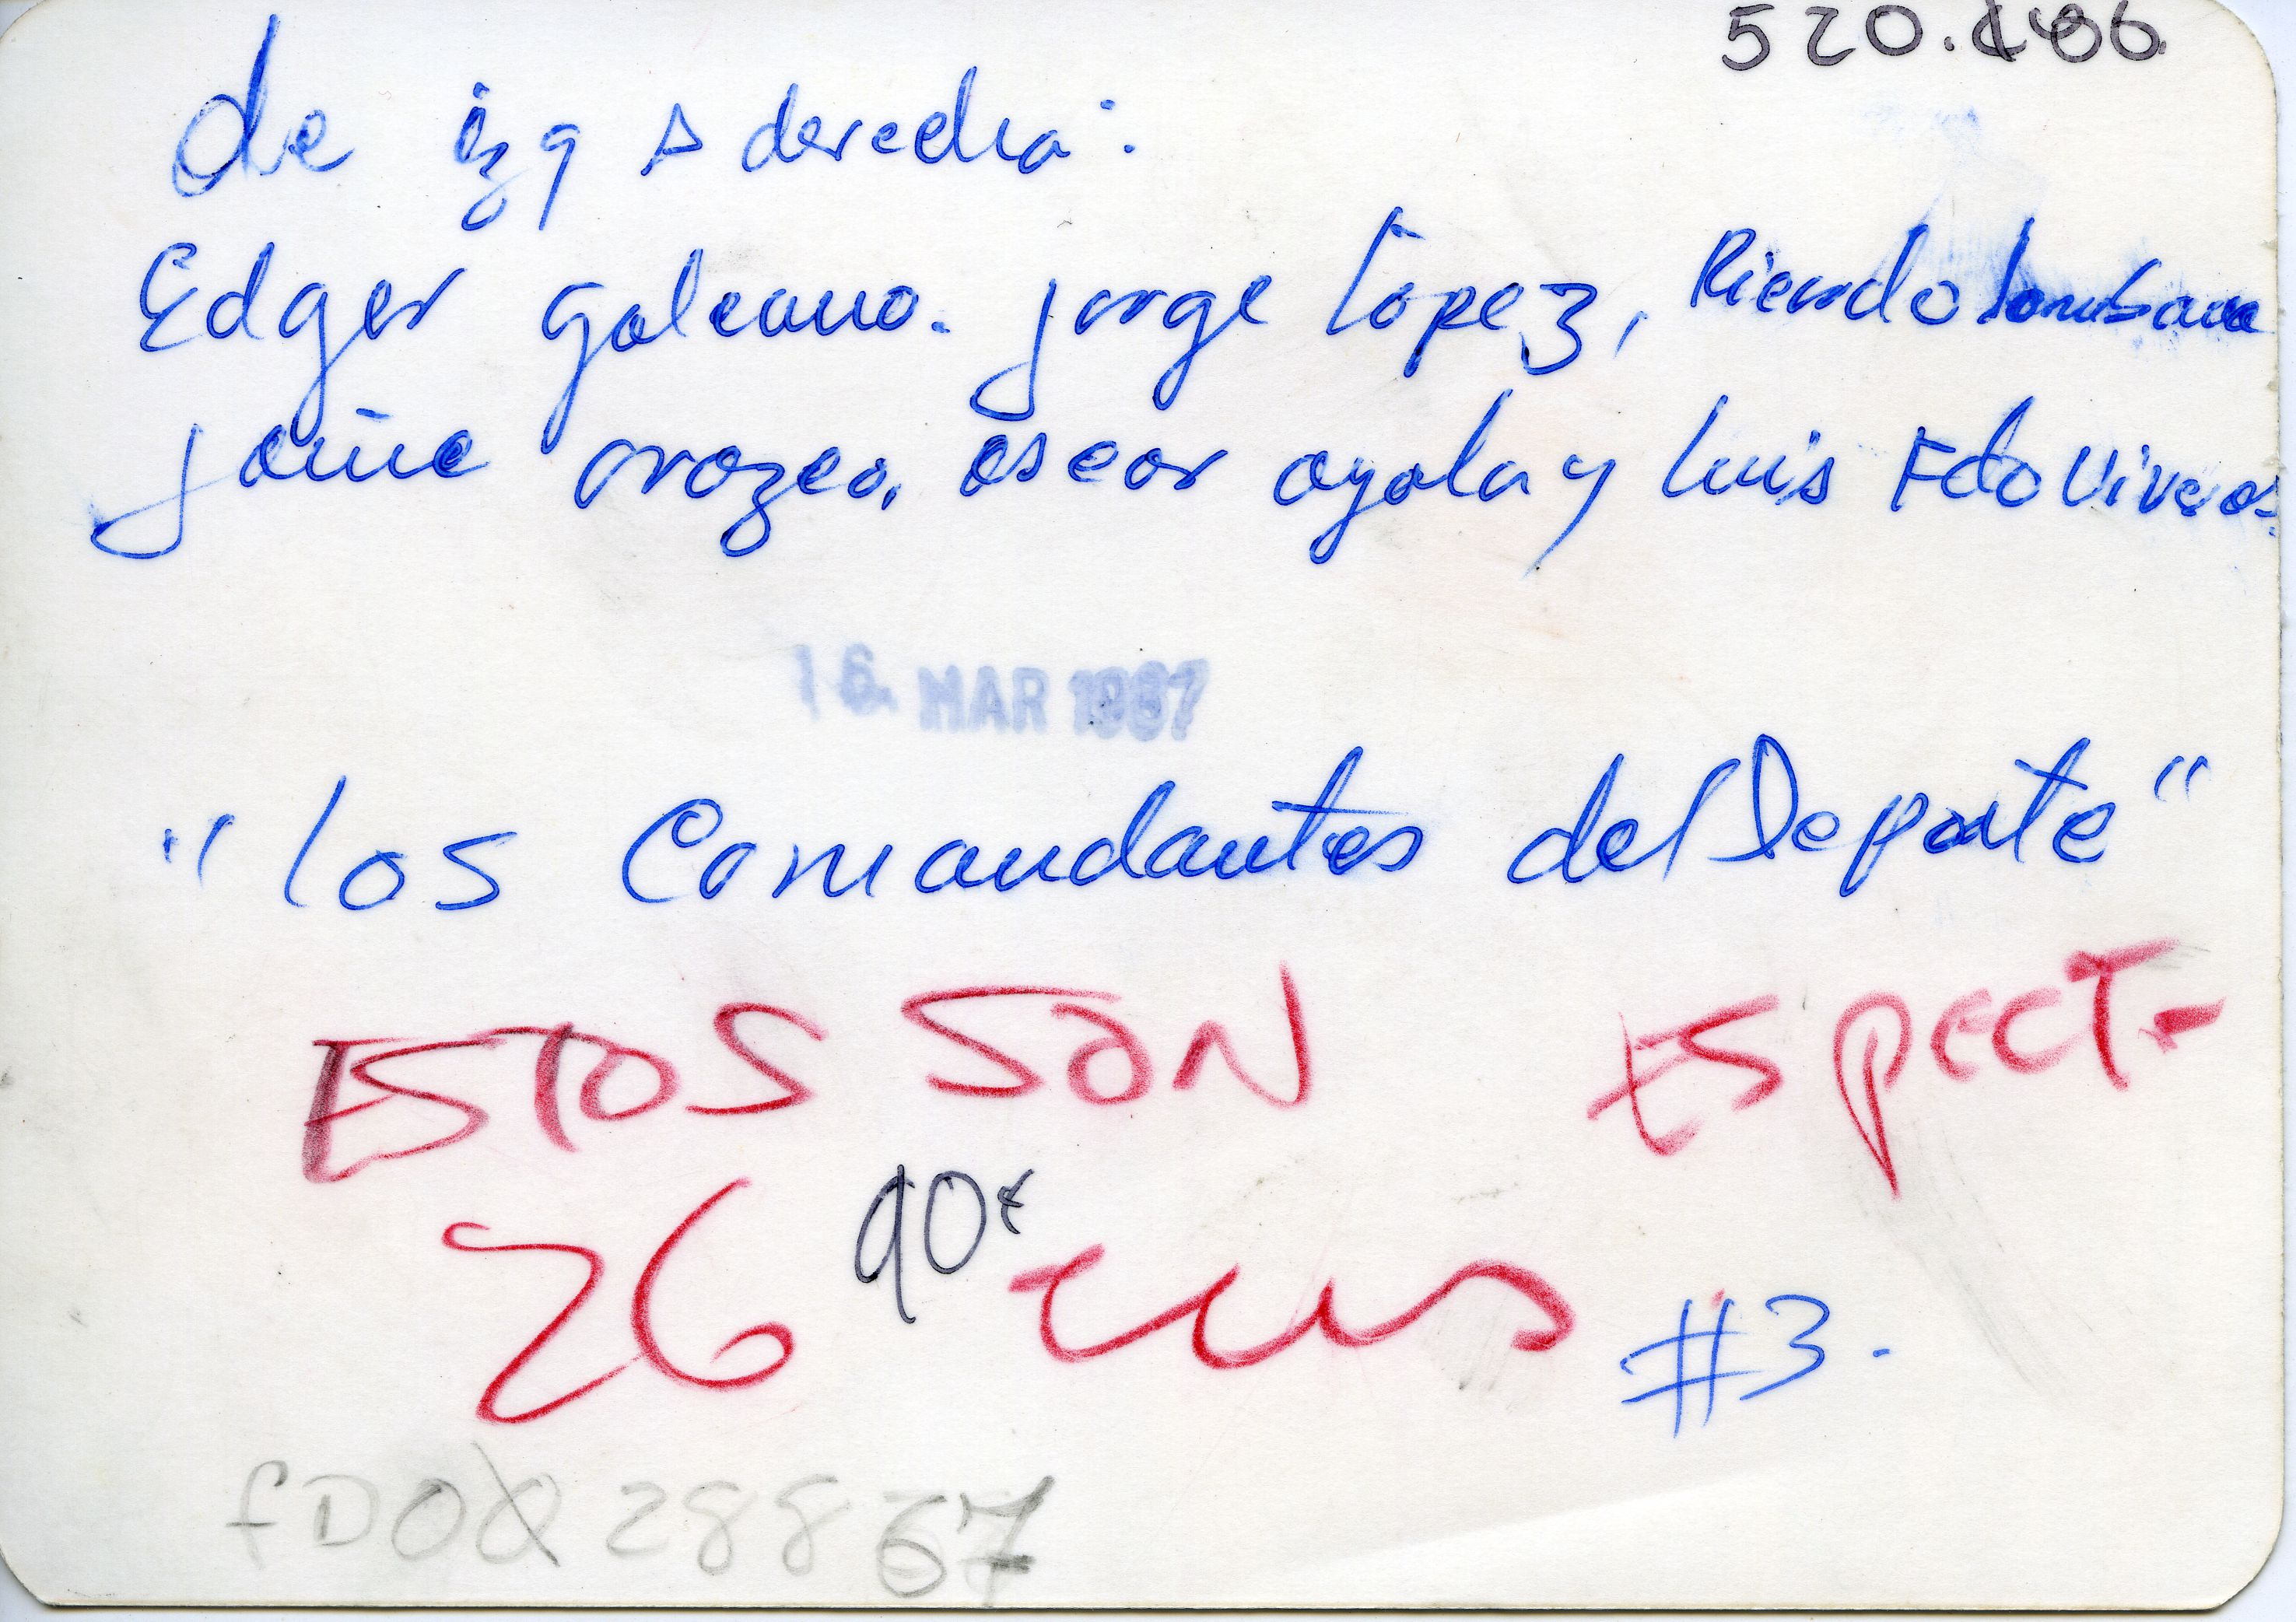 de izq A derecha:
Edgar galeano. jorge lopez, Ricardo lombana
jaime orozco, oscar ayala y luis Fdo Viveros.
16 MAR 1987
"los Comandantes del Deporte"
ESTOS SON ESPECT-
26 90%
#3.